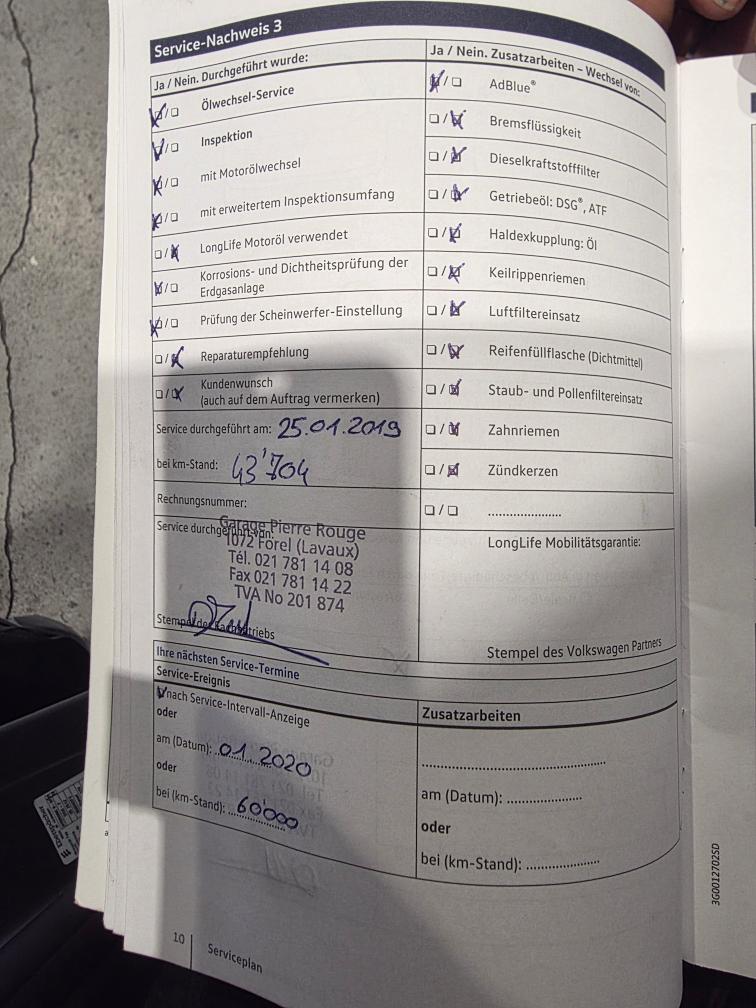 Service-Nachweis 3
Ja / Nein. Durchgeführt wurde:
Ölwechsel-Service
Inspektion
mit Motorölwechsel
mit erweitertem Inspektionsumfang
LongLife Motoröl verwendet
Korrosions- und Dichtheitsprüfung der
Erdgasanlage
Prüfung der Scheinwerfer-Einstellung
Reparaturempfehlung
Kundenwunsch
(auch auf dem Auftrag vermerken)
Service durchgeführt am: 25.01.2019
bei km-Stand: 43'704
Rechnungsnummer:
Service durchgeführt von:
Garage Pierre Rouge
1072 Forel (Lavaux)
Tél. 021 781 14 08
Fax 021 781 14 22
TVA No 201 874
Stempel des Fachbetriebs
Ja / Nein. Zusatzarbeiten – Wechsel von:
AdBlue®
Bremsflüssigkeit
Dieselkraftstofffilter
Getriebeöl: DSG®, ATF
Haldexkupplung: Öl
Keilrippenriemen
Luftfiltereinsatz
Reifenfüllflasche (Dichtmittel)
Staub- und Pollenfiltereinsatz
Zahnriemen
Zündkerzen
....................
LongLife Mobilitätsgarantie:
Stempel des Volkswagen Partners
Ihre nächsten Service-Termine
Service-Ereignis
nach Service-Intervall-Anzeige
oder
am (Datum): 01.2020
oder
bei (km-Stand): 60'000
Zusatzarbeiten
..................................................
am (Datum): ....................
oder
bei (km-Stand): ....................
3G0012702SD
10
Serviceplan